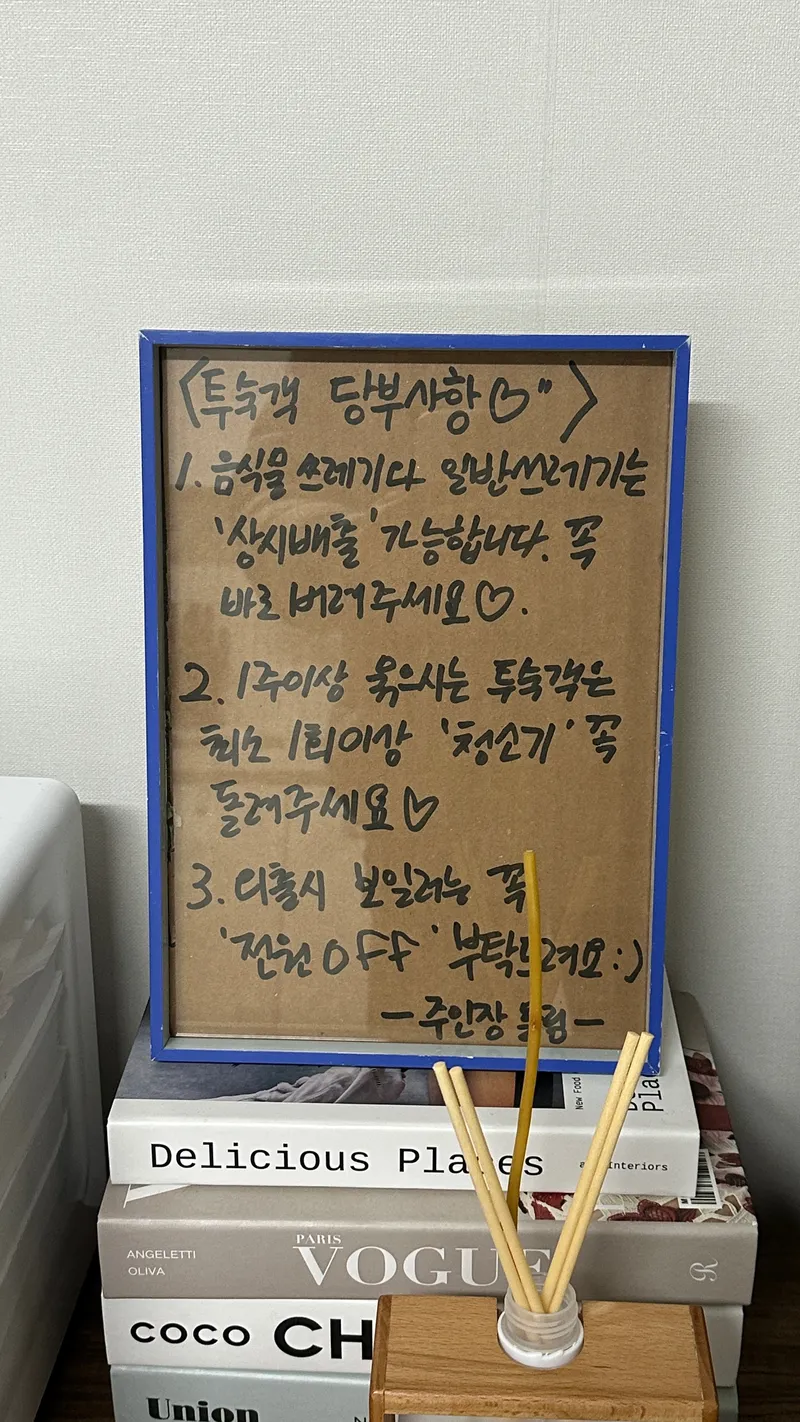 <투숙객 당부사항♡">
1. 음식물 쓰레기다 일반쓰레기는
'상시배출' 가능합니다. 꼭
바로 버려주세요♡.
2. 1주이상 묵으시는 투숙객은
최소 1회이상 '청소기' 꼭
돌려주세요♡
3. 외출시 보일러는 꼭
'전원 OFF' 부탁드려요:)
- 주인장 드림 -
New Food
Pla
Delicious Places
and Interiors
ANGELETTI
OLIVA
PARIS
VOGUE
R
COCO CH
Union